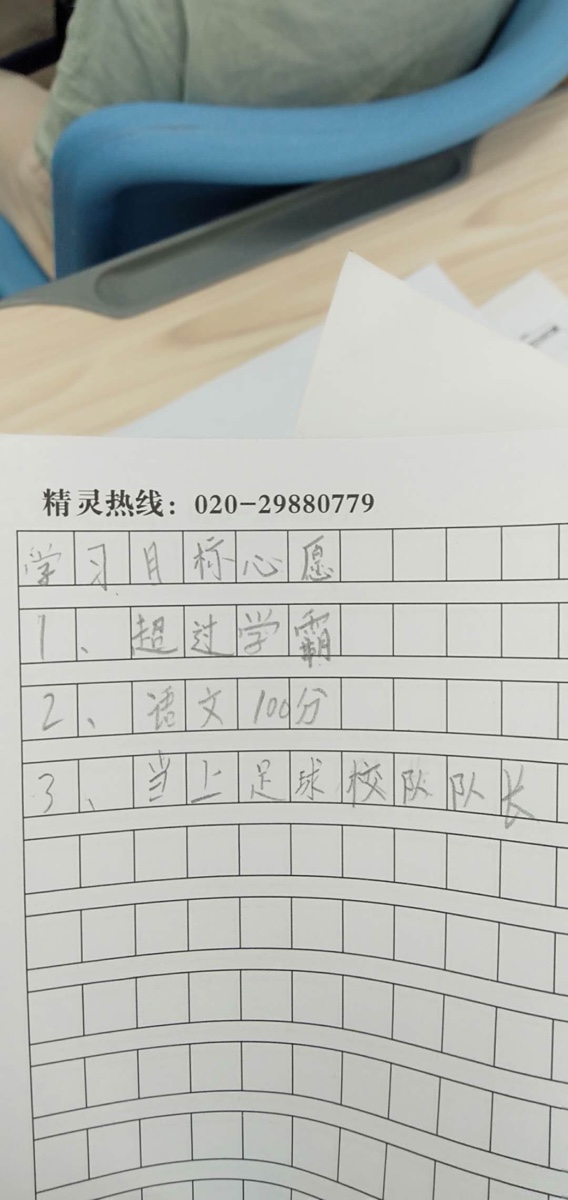 精灵热线：020-29880779
学习目标心愿
1、超过学霸
2、语文100分
3、当上足球校队队长